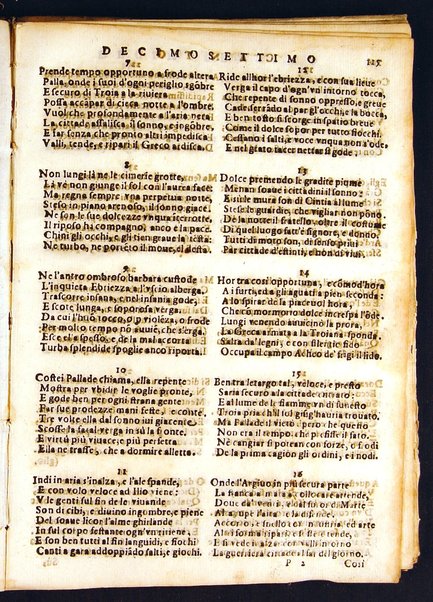 DECIMOSETTIMO 115
7
Prende tempo opportuno a frode altera
Palla, onde i suoi d'ogni periglio sgōbre
E securo di Troia a la riuiera
Possa accāpar di cieca notte a l'ombre.
Vuol che profondamente a l'aria nera
La cittade assalisca, il sonno, e sgōbre,
E far senza che pronto altri impedisca
Valli, tende, e ripari il Greco ardisca.
8
Non lungi là ne le cimerie grotte,
Là ve non giunge il sol con l'aurea face
Ma regna sempre vna perpetua notte,
Steso in piano arenoso, il sonno giace
Ne son le sue dolcezze vnqua īterrotte,
Il riposo hà compagno, anco e la pace.
Chini gli occhi, e gli tien graue la testa,
Ne turbo, ne porēto il moue, e'l desta.
9
Ne l'antro ombroso barbara custode
L'inquieta Ebriezza a l'vscio alberga,
Trascorre insana, e nel'insania gode;
E scote lunga, e soporosa verga
Da cui l'huō tocco, o p violēza, o frode
Per molto tempo nō auuiē, che s'erga
Esce ella spesso, e de la mal accorta
Turba splendide spoglie anco riporta.
10
Costei Pallade chiama, ella repente
Mostra per vbidir le voglie pronte,
E gode ben per ogni strania gente
Far sue prodezze mani feste, e conte.
Tre volte ella dal sonno iui giacente
Scosse la fatal verga in sù la fronte,
E virtù più viuace, e più perfetta
Ella ne trasse, che a dormire alletta.
11
Indi in aria s'inalza, e l'ale spande,
E con volo veloce ad Ilio viene:
V le genti sul fin de le viuande
Son di cibi, e diuino ingombre, e piene
Del soaue licor l'alme ghirlande
In sul corpo festante ogn'vn ritiene;
E son ben tutti al fin languidi, e fiochi
Canti a gara addoppiādo salti, e giochi.
12
Ride allhor l'ebriezza, e con sua lieue
Verga il capo d'ogn'vn intorno tocca,
Che repente di sonno oppresso, e greue
Cade serrādo al par gl'occhi, e la bocca,
E ben tosto si scorge in spatio breue
Come il dolce sopor per tutto fiocchi,
Cessano i salti, e voce vnqua non s'ode,
E nel grato tacer nettar si gode.
13
Dolce premendo le gradite piume
Menan soaue i cittadini il sonno:
E sù le mura son di Cintia al lume
Stese le guardie, che vigliar non pōno.
De la notte il fratello oltre il costume
Di quel luogo fatt'è signore, e donno.
Tutti di moto son, di senso priui
Par cittade d'estinti, e non di viui.
14
Hor tra così opportuno, e cōmod'hora
A i furti, ed a gli aguati pien seconda:
A lo spirar de la piaceuol hora,
Che cō mormorio dolce increspa l'ōde.
Lungi venendo auuicinò la prora,
La Greca armata a la Troiana sponda.
Salta da' legni, e con silentio fido
Occupa il campo Achico de' Frigi il lido.
15
Ben tra letargo tal, veloce, e presto
Saria securo a la cittade entrato,
E al lume de le fiamme vn di funesto
Troia pria ch'il sol sorg'hauria trouato.
Ma Pallade il vietò però che questo
Non era il tempo, che prefisse il fato.
Nè cangiar si potean con forze, e cō fodi
De la prima cagiōn gli ordini, e i nodi.
16
Onde l'Argiuo in più secura parte
La fianca armata, collocare attende,
Doue da' venti, e dal furor di Marte
Al au pe l'alta e la difende.
Accorto, e snello con industria, ed arte
Al suo ritorno ogn'vn distende.
E vede i e cō vallo e in
La guerriera cittade al far del giorno.
P 2 Così